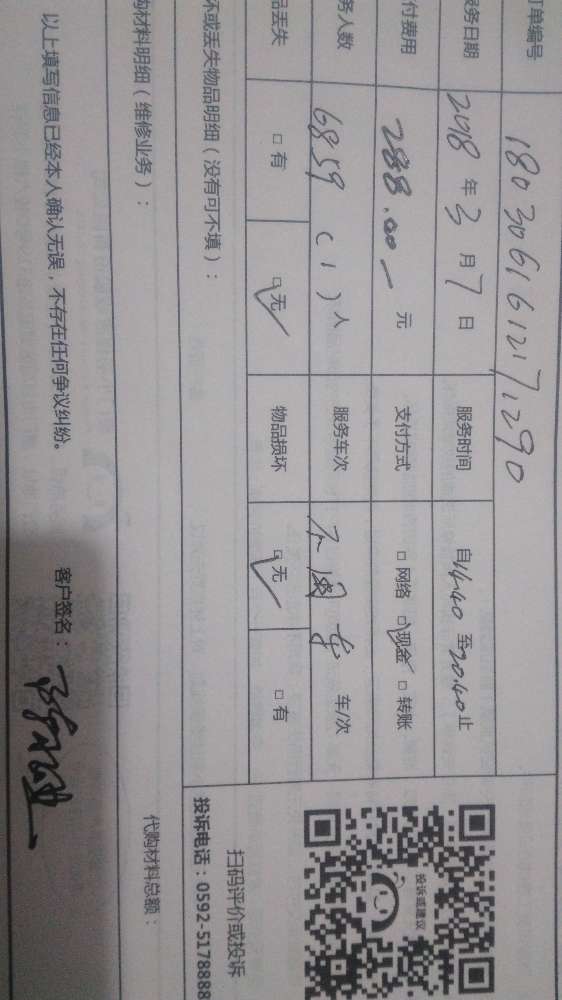 订单编号 180306161217290
服务日期 2018 年 3 月 7 日 服务时间 自14:40 至20:40止
付费用 288.00 元 支付方式 □ 网络 ☑ 现金 □ 转账
务人数 6859 ( 1 ) 人 服务车次 不用车 车/次
品丢失 □ 有 ☑ 无 物品损坏 ☑ 无 □ 有
坏或丢失物品明细(没有可不填):
购材料明细(维修业务): 代购材料总额:
以上填写信息已经本人确认无误,不存在任何争议纠纷。 客户签名:
投诉或建议
扫码评价或投诉
投诉电话:0592-5178888